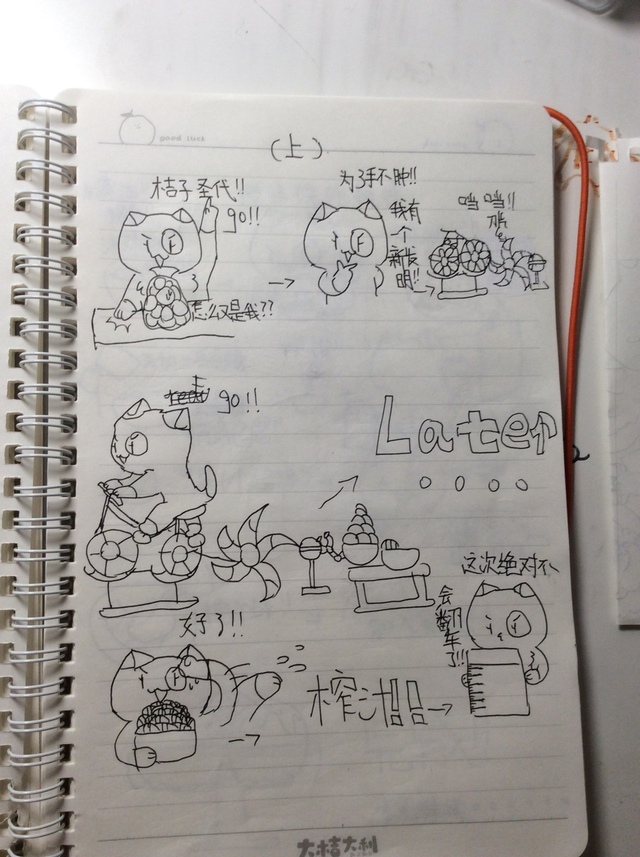 good luck
(上)
桔子圣代!!
go!!
怎么又是我??
为了手不肿!!
我有一个新发明!!
当当!!
go!!
Later
。。。。
好了!!
榨汁!!
这次绝对不
会翻车了!!!
大桔大利